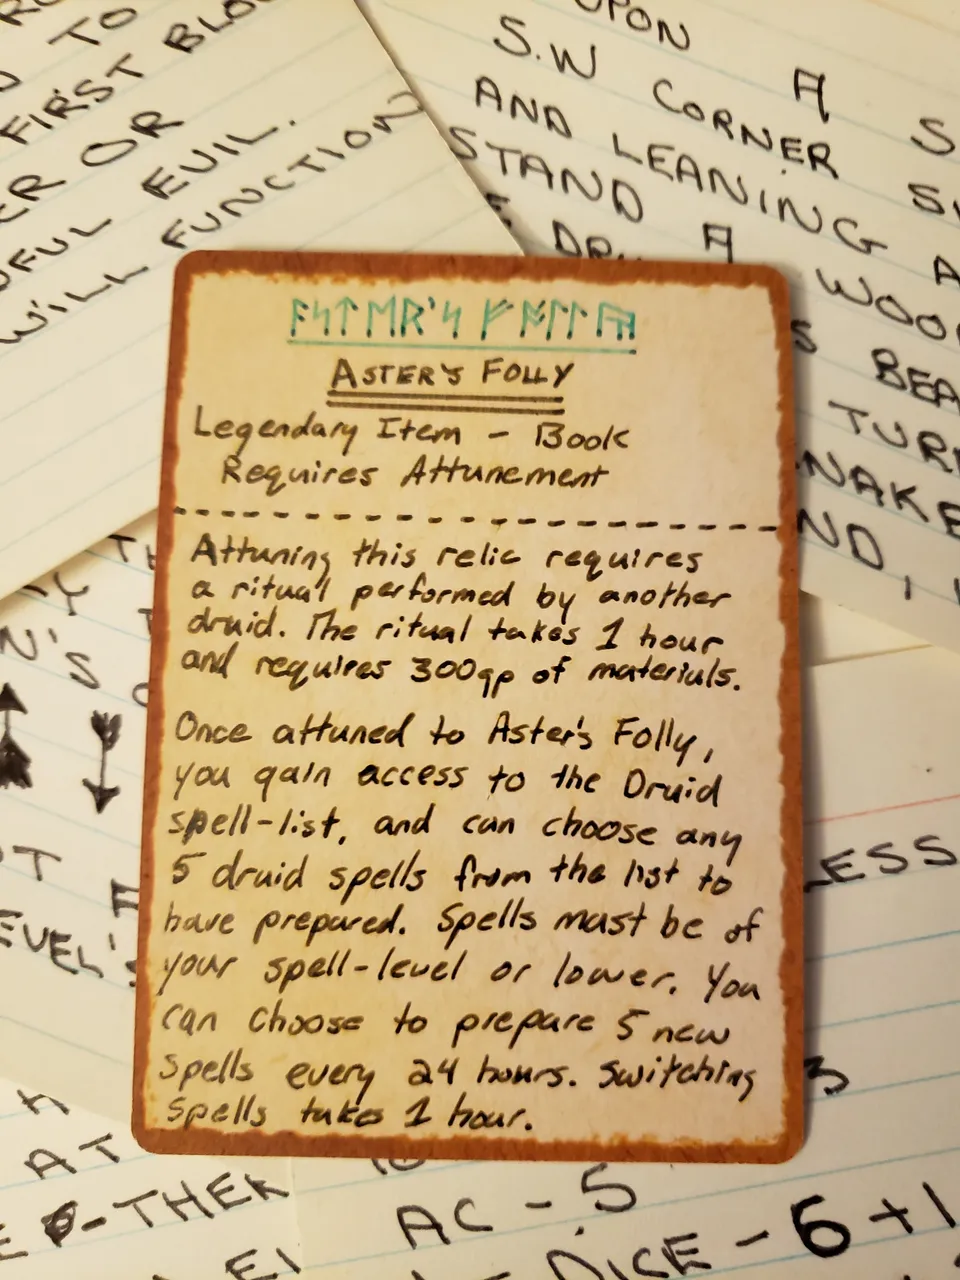 ᚨᛋᛏᛖᚱ'ᛋ ᚠᚩᛚᛚᚣ
ASTER'S FOLLY
Legendary Item - Book
Requires Attunement
Attuning this relic requires
a ritual performed by another
druid. The ritual takes 1 hour
and requires 300gp of materials.
Once attuned to Aster's Folly,
you gain access to the Druid
spell-list, and can choose any
5 druid spells from the list to
have prepared. Spells must be of
your spell-level or lower. You
can choose to prepare 5 new
spells every 24 hours. Switching
spells takes 1 hour.
TO
FIRST
OR
EVIL.
WILL FUNCTION
UPON A
S.W CORNER
AND LEANING
STAND A
WOO
BEA
TUR
NAKE
ND,
LESS
3
AT
AC - 5
DICE - 6 + 1